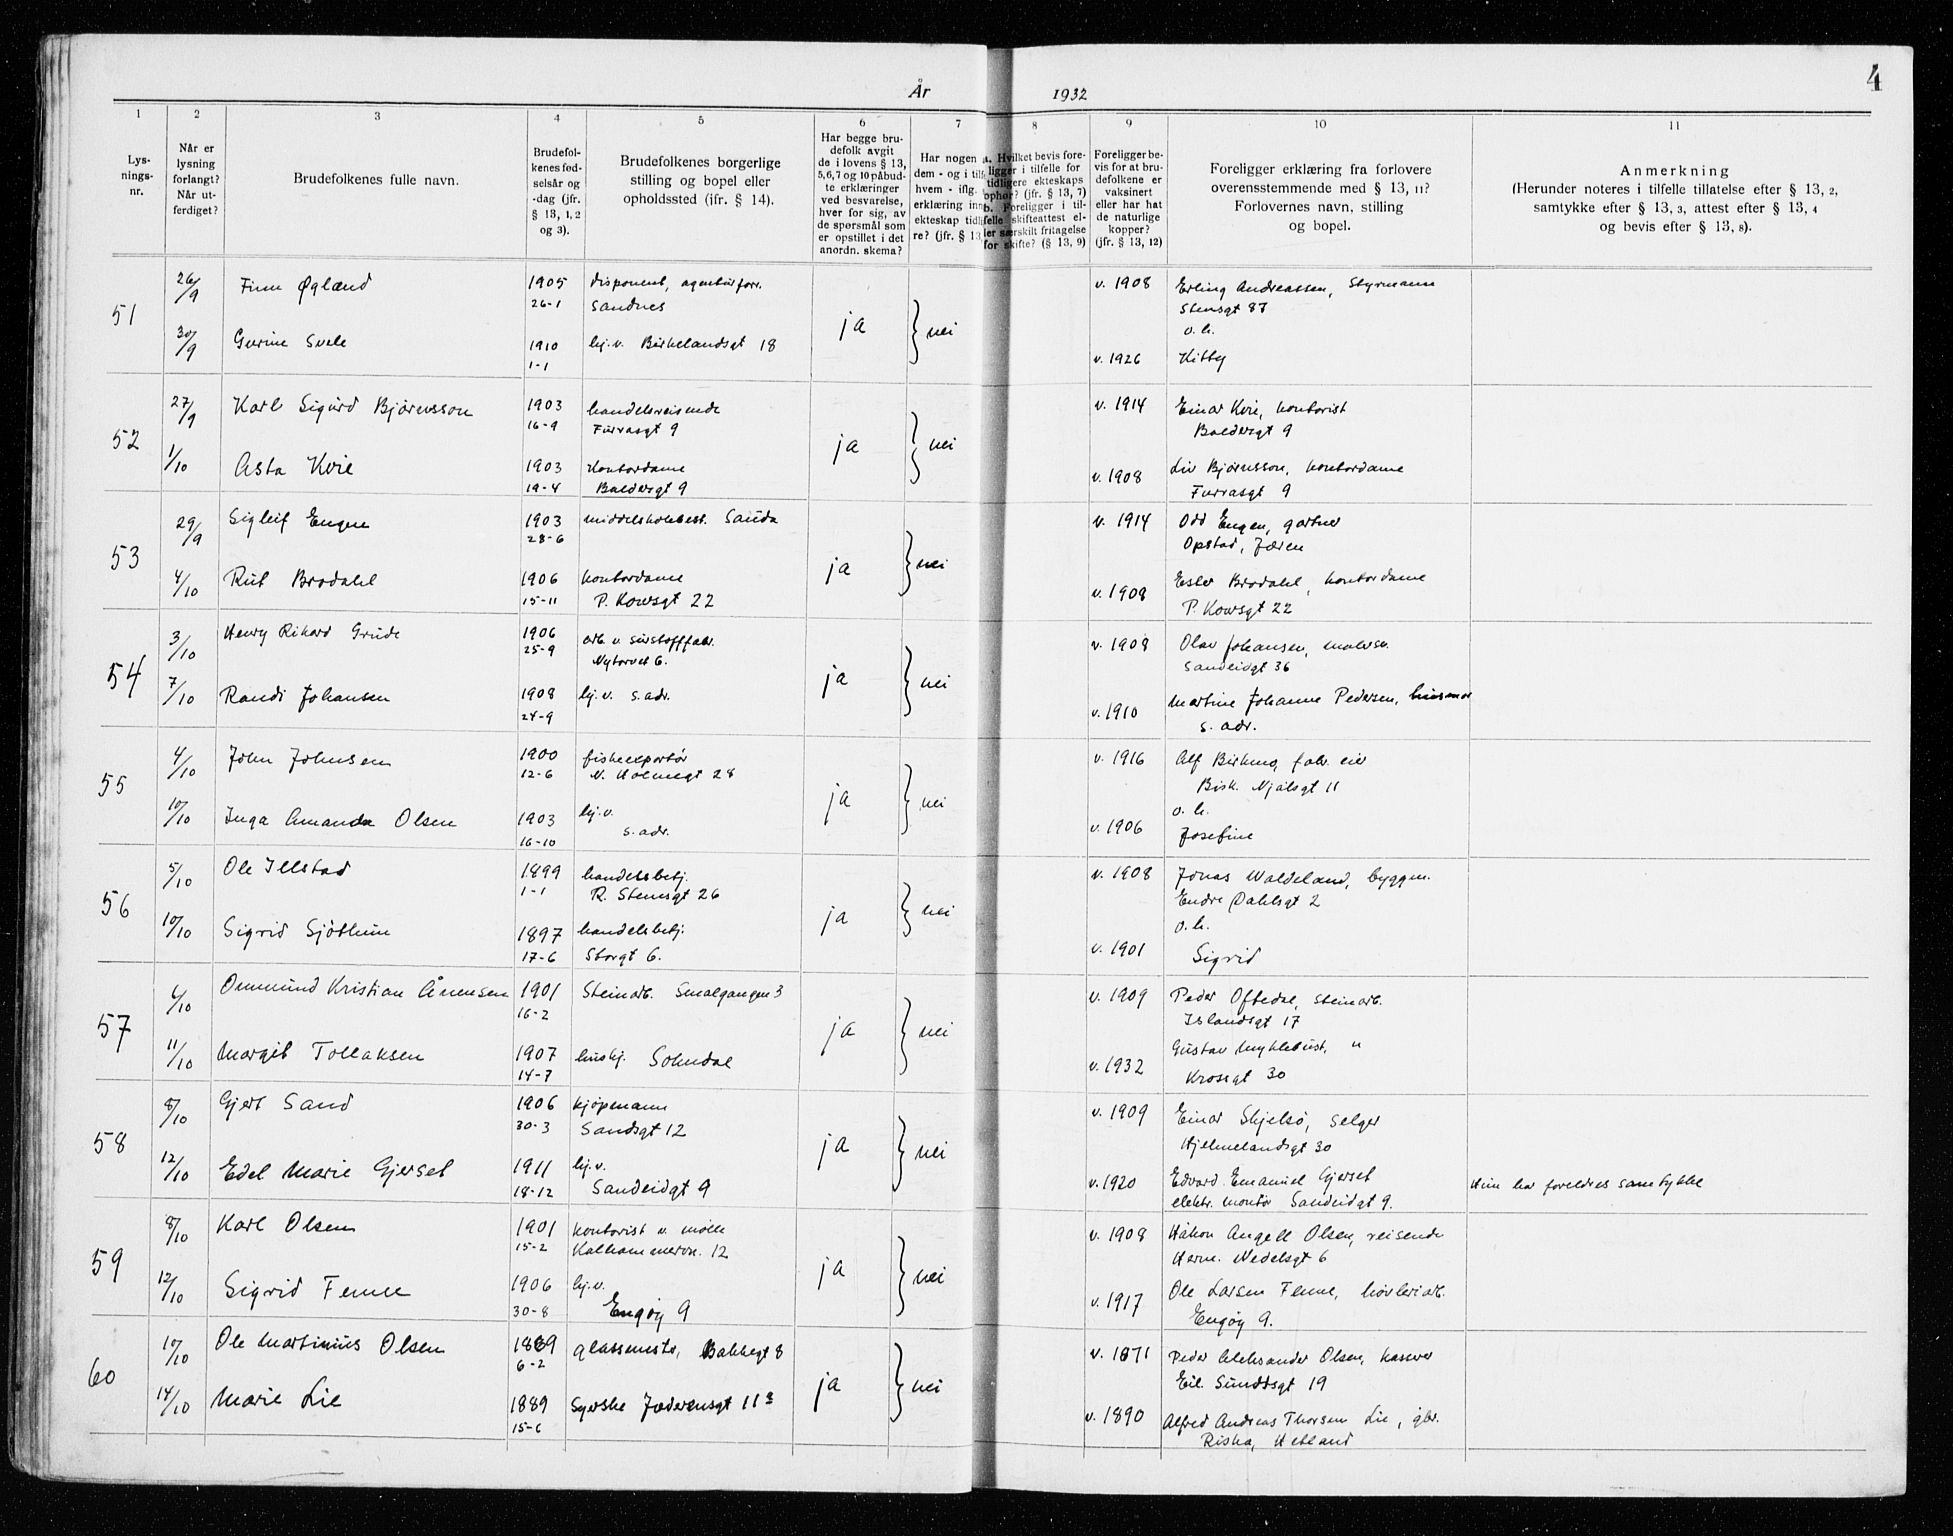 År 1932
4
1 2 3 4 5 6 7 8 9 10 11
Lys-
nings-
nr.
Når er
lysning
forlangt?
Når ut-
ferdiget?
Brudefolkenes fulle navn.
Brudefol-
kenes fød-
selsår og
-dag (jfr.
§ 13, 1, 2
og 3).
Brudefolkenes borgerlige
stilling og bopel eller
opholdssted (jfr. § 14).
Har begge bru-
defolk avgit
de i lovens § 13,
5,6,7 og 10 påbud-
te erklæringer
ved besvarelse,
hver for sig, av
de spørsmål som
er opstillet i det
anordn. skema?
Har nogen a
dem - og i tilf
hvem - iflg.
erklæring inn
ekteskap tidl
re? (jfr. § 13
a. Hvilket bevis fore-
ligger i tilfelle for
tidligere ekteskaps
ophør? (jfr. § 13, 7)
b. Foreligger i til-
felle skifteattest el-
ler særskilt fritagelse
for skifte? (§ 13, 9)
Foreligger be-
vis for at bru-
defolkene er
vaksinert
eller har hat
de naturlige
kopper?
(jfr. § 13, 12)
Foreligger erklæring fra forlovere
overensstemmende med § 13, 11?
Forlovernes navn, stilling
og bopel.
Anmerkning
(Herunder noteres i tilfelle tillatelse efter § 13, 2,
samtykke efter § 13, 3, attest efter § 13, 4
og bevis efter § 13, 8).
51 26/9 Finn Øgland 1905 disponent, agenturforr. v. 1908 Erling Andreassen, Styrmann
26-1 Sandnes Stensgt 87
ja nei o. h.
30/9 Gurine Svele 1910 hj. v. Birkelandsgt 18 v. 1926 Kitty
1-1
52 27/9 Karl Sigurd Bjørnsson 1903 handelsreisende v. 1914 Einar Kvie, kontorist
16-9 Furrasgt 9 Baldersgt 9
ja nei
1/10 Asta Kvie 1903 Kontordame v. 1908 Liv Bjørnsson, kontordame
19-4 Baldersgt 9 Furrasgt 9
53 29/9 Sigleif Engen 1903 middelskolebest. Sauda v. 1914 Odd Engen, gartner
28-6 Opstad, Jæren
ja nei
4/10 Rut Brodahl 1906 kontordame v. 1908 Ester Brodahl, kontordame
15-11 P. Kowsgt 22 P. Kowsgt 22
54 3/10 Henry Rikard Grude 1906 arb. v. surstofffabr. v. 1908 Olav Johansen, malersv.
25-9 Nytorvet 6. Sandeidgt 36
ja nei
7/10 Randi Johansen 1908 hj. v. s. adr. v. 1910 Martine Johanne Pedersen, husmor
24-9 s. adr.
55 4/10 John Johnsen 1900 fiskeexportør v. 1916 Alf Birkeng, fabr. eier
12-6 N. Holmegt 28 Bisk. Njålsgt 11
ja nei o. h.
10/10 Inga Amanda Olsen 1903 hj. v. v. 1906 Josefine
16-10 s. adr.
56 5/10 Ole Illstad 1899 handelsbetj. v. 1908 Jonas Waldeland, byggm.
1-1 R. Stensgt 26 Endre Dahlsgt 2
ja nei o. h.
10/10 Sigrid Sjöthun 1897 handelsbetj. v. 1901 Sigrid
17-6 Storgt 6.
57 6/10 Ommund Kristian Ånensen 1901 Steinarb. Smalgangen 3 v. 1909 Peder Oftedal, steinarb.
16-2 Islandsgt 17
ja nei
11/10 Margit Tollaksen 1907 hushj. Sokndal v. 1932 Gustav Myklebust, "
14-7 Krossgt 30
58 8/10 Gjert Sand 1906 kjøpmann v. 1909 Einar Skjelsø, selger
30-3 Sandsgt 12 Hjelmelandsgt 30
ja nei
12/10 Edel Marie Gjerset 1911 hj. v. v. 1920 Edvard Emanuel Gjerset Hun har foreldres samtykke
18-12 Sandeidgt 9 elektr. montør Sandeidgt 9.
59 8/10 Karl Olsen 1901 kontorist v. mølle v. 1908 Håkon Angell Olsen, reisende
15-2 Kalhammerv. 12 Herm. Wedelsgt 6
ja nei
12/10 Sigrid Fenne 1906 hj. v. v. 1917 Ole Larsen Fenne, høvleriarb.
30-8 Engøy 9 Engøy 9.
60 10/10 Ole Martinius Olsen 1869 glassmestr., Bakkegt 8 v. 1871 Peder Aleksander Olsen, kasserer
6-2 Eil. Sundtsgt 19
ja nei
14/10 Marie Lie 1889 Syerske Jæderensgt 11 v. 1890 Alfred Andreas Thorsen Lie, gbr.
15-6 Riska, Hetland